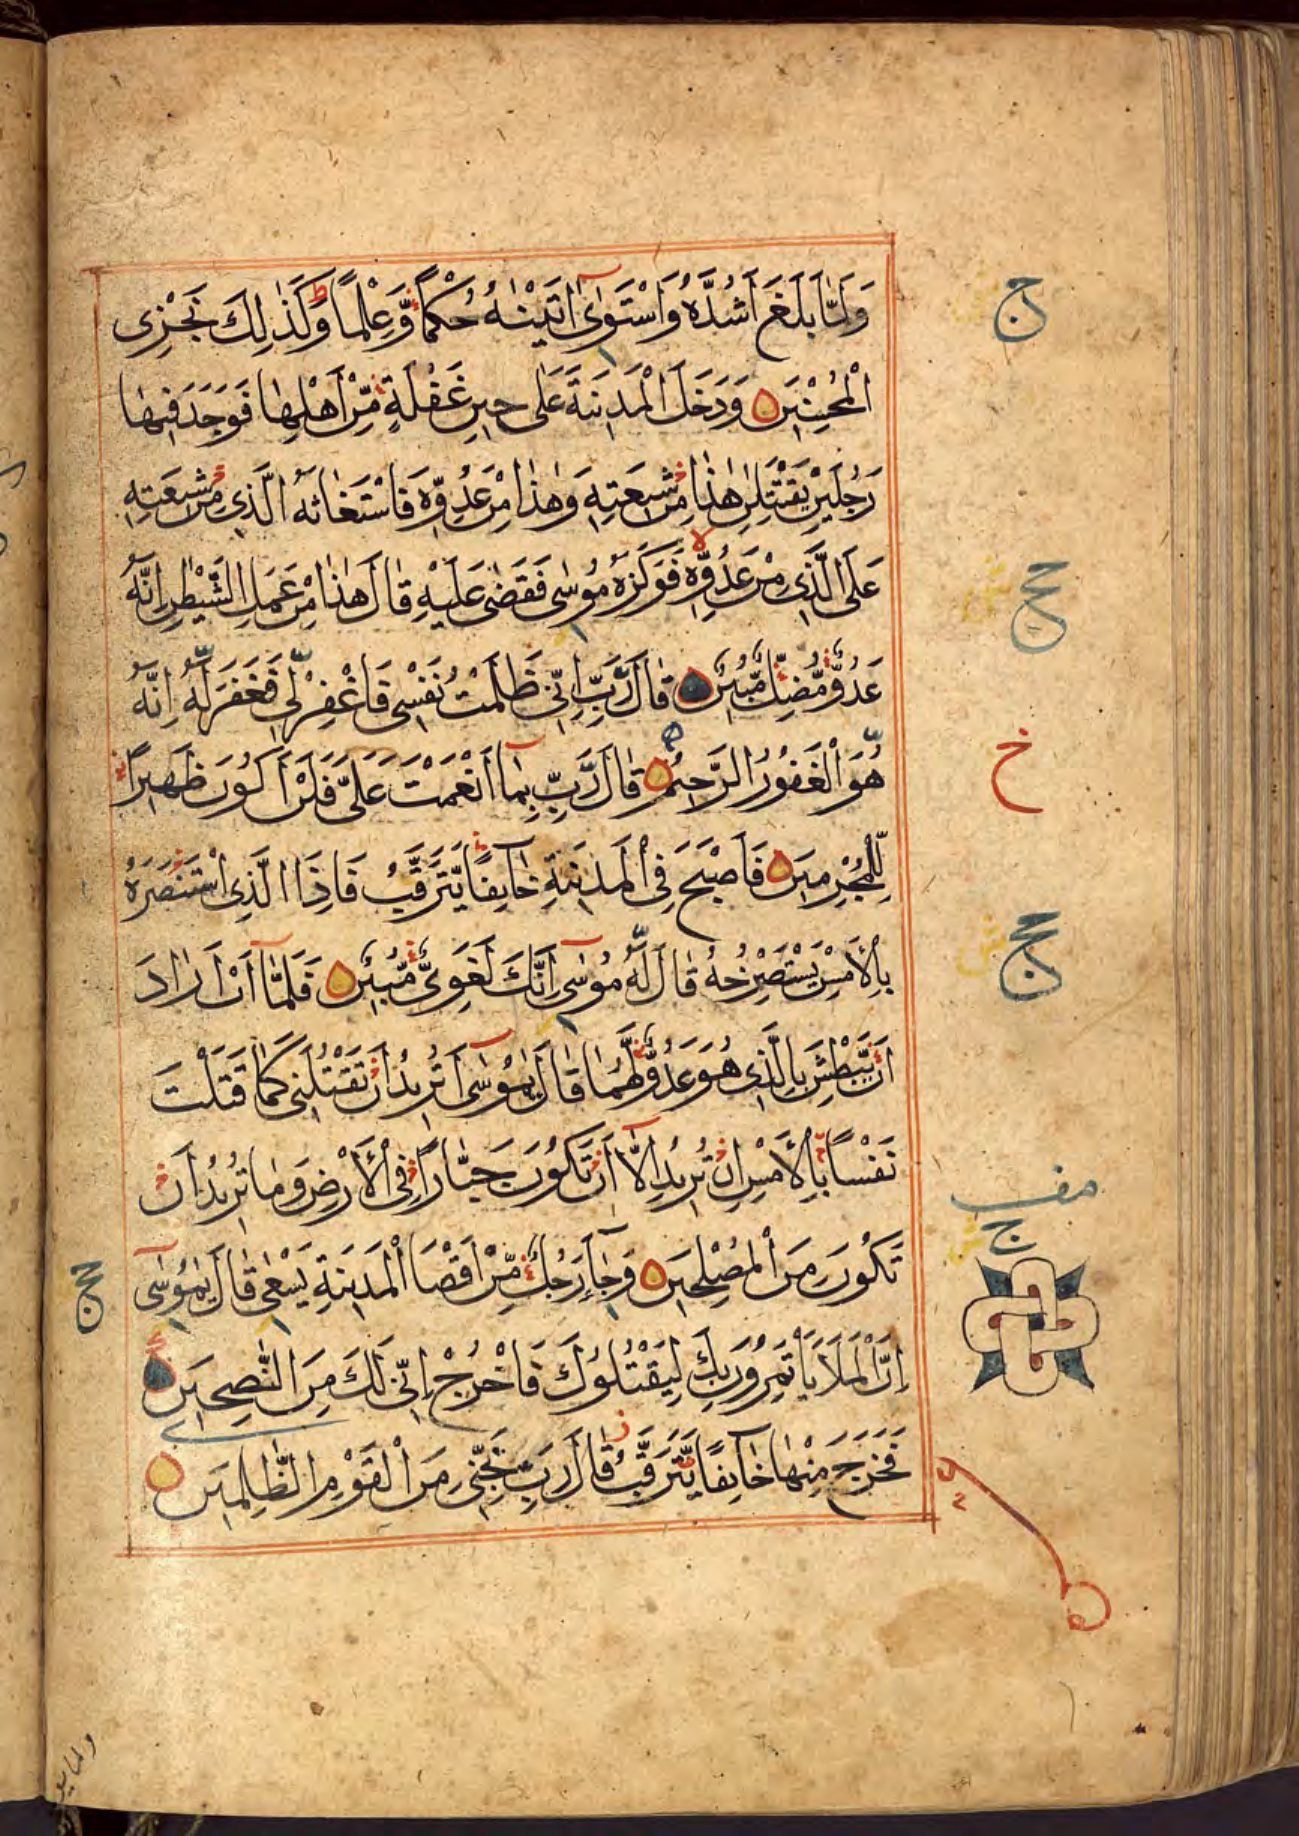 وَلَمَّا بَلَغَ أَشُدَّهُ وَاسْتَوٰى اٰتَيْنٰهُ حُكْمًا وَّعِلْمًا وَكَذٰلِكَ نَجْزِى
الْمُحْسِنِيْنَ وَدَخَلَ الْمَدِيْنَةَ عَلٰى حِيْنِ غَفْلَةٍ مِّنْ اَهْلِهَا فَوَجَدَ فِيْهَا
رَجُلَيْنِ يَقْتَتِلٰنِ هٰذَا مِنْ شِيْعَتِهٖ وَهٰذَا مِنْ عَدُوِّهٖ فَاسْتَغَاثَهُ الَّذِى مِنْ شِيْعَتِهٖ
عَلَى الَّذِى مِنْ عَدُوِّهٖ فَوَكَزَهُ مُوْسٰى فَقَضٰى عَلَيْهِ قَالَ هٰذَا مِنْ عَمَلِ الشَّيْطٰنِ اِنَّهُ
عَدُوٌّ مُّضِلٌّ مُّبِيْنٌ قَالَ رَبِّ اِنِّى ظَلَمْتُ نَفْسِى فَاغْفِرْ لِى فَغَفَرَ لَهُ اِنَّهُ
هُوَ الْغَفُوْرُ الرَّحِيْمُ قَالَ رَبِّ بِمَا اَنْعَمْتَ عَلَىَّ فَلَنْ اَكُوْنَ ظَهِيْرًا
لِّلْمُجْرِمِيْنَ فَاَصْبَحَ فِى الْمَدِيْنَةِ خَآىِٕفًا يَّتَرَقَّبُ فَاِذَا الَّذِى اسْتَنْصَرَهُ
بِالْاَمْسِ يَسْتَصْرِخُهُ قَالَ لَهُ مُوْسٰى اِنَّكَ لَغَوِىٌّ مُّبِيْنٌ فَلَمَّا اَنْ اَرَادَ
اَنْ يَّبْطِشَ بِالَّذِى هُوَ عَدُوٌّ لَّهُمَا قَالَ يٰمُوْسٰى اَتُرِيْدُ اَنْ تَقْتُلَنِى كَمَا قَتَلْتَ
نَفْسًا بِالْاَمْسِ اِنْ تُرِيْدُ اِلَّا اَنْ تَكُوْنَ جَبَّارًا فِى الْاَرْضِ وَمَا تُرِيْدُ اَنْ
تَكُوْنَ مِنَ الْمُصْلِحِيْنَ وَجَآءَ رَجُلٌ مِّنْ اَقْصَا الْمَدِيْنَةِ يَسْعٰى قَالَ يٰمُوْسٰى
اِنَّ الْمَلَاَ يَاْتَمِرُوْنَ بِكَ لِيَقْتُلُوْكَ فَاخْرُجْ اِنِّى لَكَ مِنَ النّٰصِحِيْنَ
فَخَرَجَ مِنْهَا خَآىِٕفًا يَّتَرَقَّبُ قَالَ رَبِّ نَجِّنِى مِنَ الْقَوْمِ الظّٰلِمِيْنَ
ج
ج
خ
ج
ج